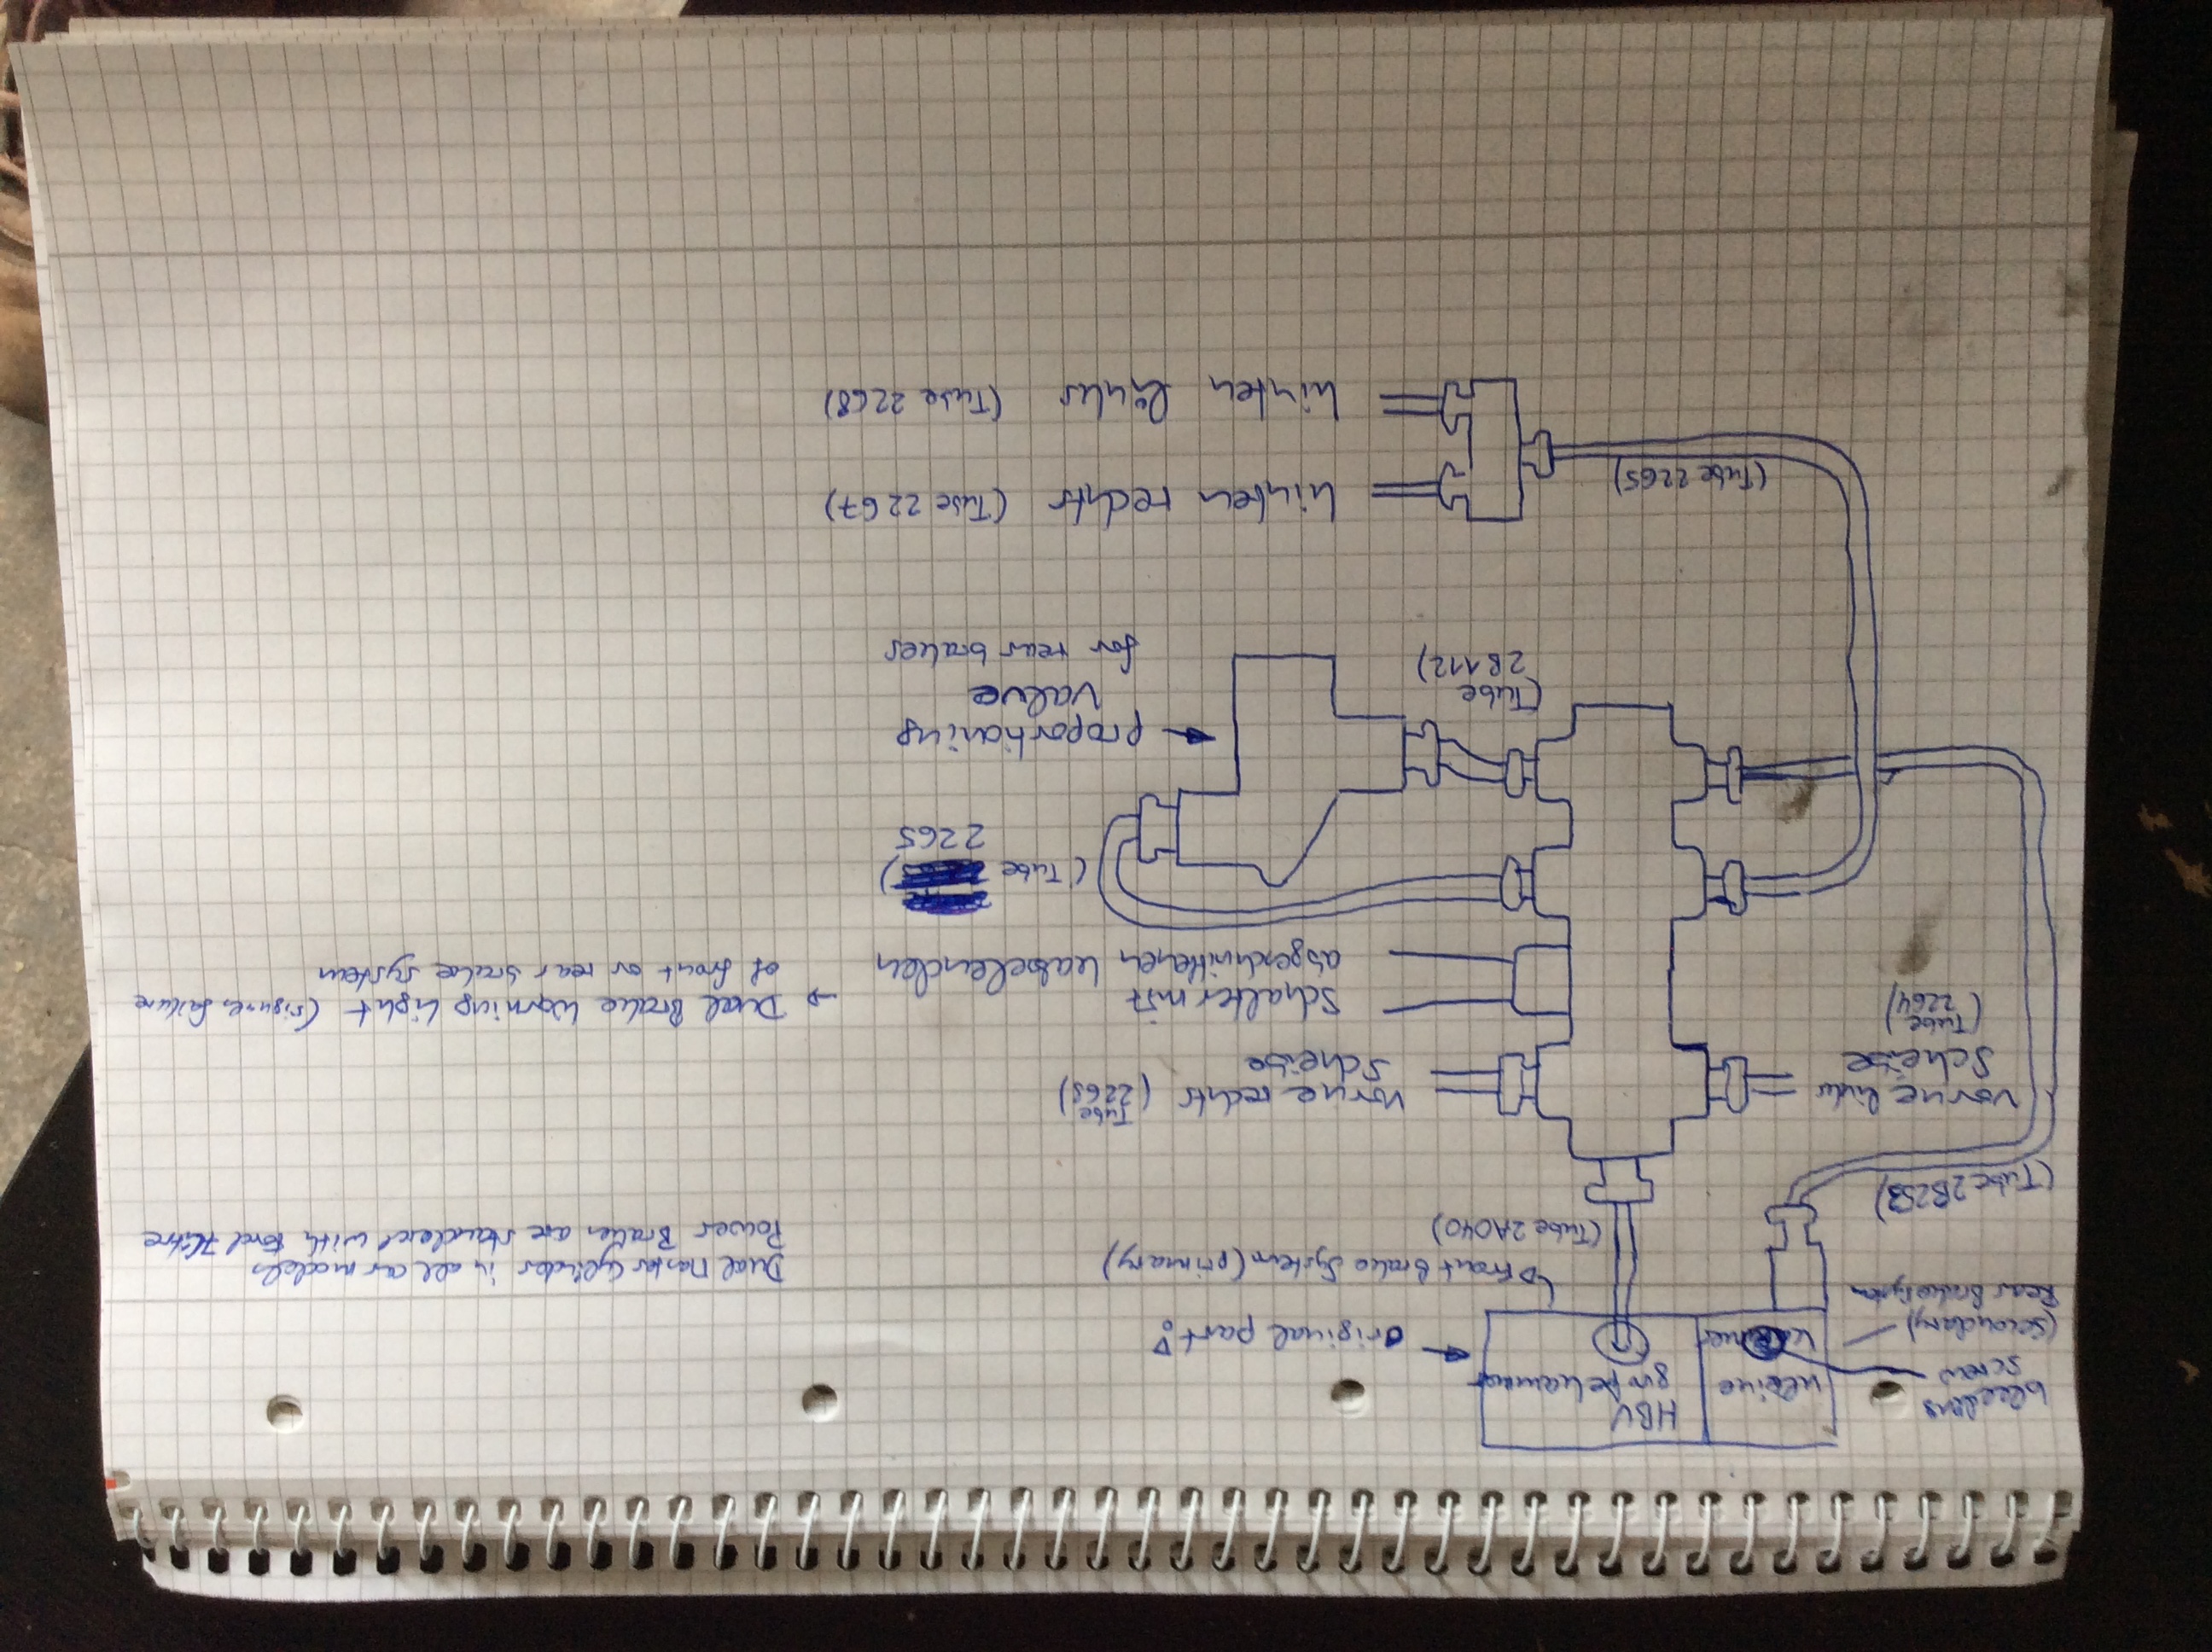 bleeding
screw
(Secondary)
Rear Brake System
kleine
HBV
große Kammer
original part?
Front Brake System (primary)
(Tube 2A040)
Dual Master Cylinder in all car models
Power Brakes are standard with Ford 7litre
(Tube 2B253)
vorne links
Scheibe
(Tube
2264)
vorne rechts
Scheibe
(Tube
2263)
Schalter mit
abgeschnittenen Kabelenden
→ Dual Brake Warning Light (signure failure
of front or rear brake system
(Tube
2265
proportioning
Valve
for rear brakes
(Tube
2B112)
(Tube 2265)
hinten rechts (Tube 2267)
hinten links (Tube 2268)